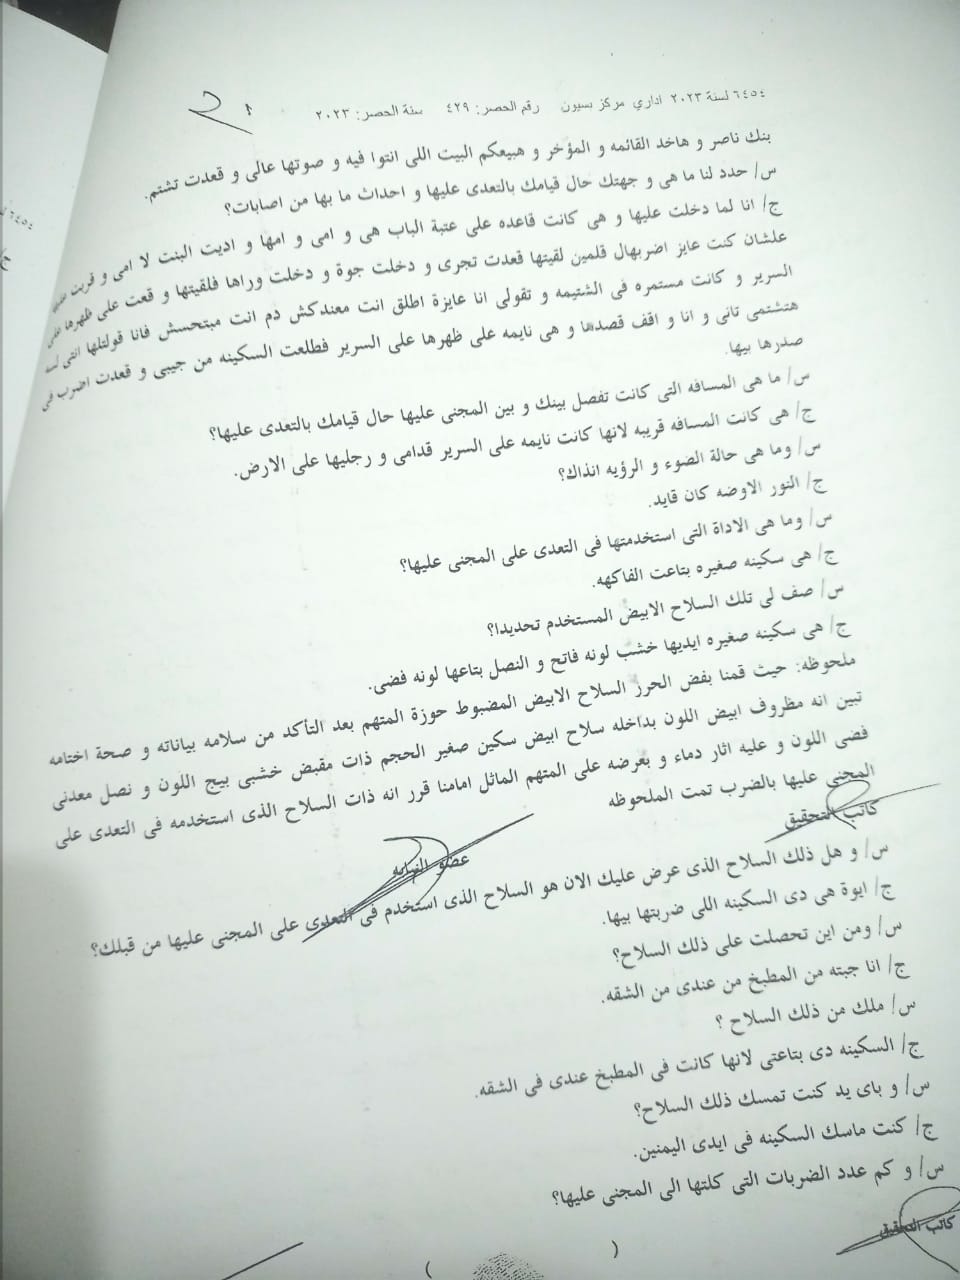 ٦٤٥٤ لسنة ٢٠٢٣ اداري مركز بسيون رقم الحصر: ٤٢٩ سنة الحصر: ٢٠٢٣
بنك ناصر و هاخد القائمه و المؤخر و هبيعكم البيت اللى انتوا فيه و صوتها عالى و قعدت تشتم.
س/ حدد لنا ما هى و جهتك حال قيامك بالتعدى عليها و احداث ما بها من اصابات؟
ج/ انا لما دخلت عليها و هى كانت قاعده على عتبة الباب هى و امى و امها و اديت البنت لا امى و قربت
علشان كنت عايز اضربهال قلمين لقيتها قعدت تجرى و دخلت جوة و دخلت وراها فلقيتها و قعت على ظهرها على
السرير و كانت مستمره فى الشتيمه و تقولى انا عايزة اطلق انت معندكش دم انت مبتحسش فانا قولتلها انتى لسه
هتشتمى تانى و انا و اقف قصدها و هى نايمه على ظهرها على السرير فطلعت السكينه من جيبى و قعدت اضرب فى
صدرها بيها.
س/ ما هى المسافه التى كانت تفصل بينك و بين المجنى عليها حال قيامك بالتعدى عليها؟
ج/ هى كانت المسافه قريبه لانها كانت نايمه على السرير قدامى و رجليها على الارض.
س/ وما هى حالة الضوء و الرؤيه انذاك؟
ج/ النور الاوضه كان قايد.
س/ وما هى الاداة التى استخدمتها فى التعدى على المجنى عليها؟
ج/ هى سكينه صغيره بتاعت الفاكهه.
س/ صف لى تلك السلاح الابيض المستخدم تحديدا؟
ج/ هى سكينه صغيره ايديها خشب لونه فاتح و النصل بتاعها لونه فضى.
ملحوظه: حيث قمنا بفض الحرز السلاح الابيض المضبوط حوزة المتهم بعد التأكد من سلامه بياناته و صحة اختامه
تبين انه مظروف ابيض اللون بداخله سلاح ابيض سكين صغير الحجم ذات مقبض خشبى بيج اللون و نصل معدنى
فضى اللون و عليه اثار دماء و بعرضه على المتهم الماثل امامنا قرر انه ذات السلاح الذى استخدمه فى التعدى على
المجنى عليها بالضرب تمت الملحوظه
كاتب التحقيق
عضو النيابه
س/ و هل ذلك السلاح الذى عرض عليك الان هو السلاح الذى استخدم فى التعدى على المجنى عليها من قبلك؟
ج/ ايوة هى دى السكينه اللى ضربتها بيها.
س/ ومن اين تحصلت على ذلك السلاح؟
ج/ انا جبته من المطبخ من عندى من الشقه.
س/ ملك من ذلك السلاح ؟
ج/ السكينه دى بتاعتى لانها كانت فى المطبخ عندى فى الشقه.
س/ و باى يد كنت تمسك ذلك السلاح؟
ج/ كنت ماسك السكينه فى ايدى اليمنين.
س/ و كم عدد الضربات التى كلتها الى المجنى عليها؟
كاتب التحقيق